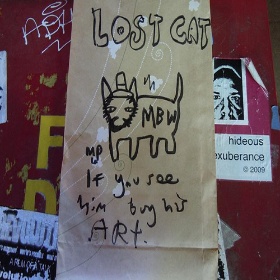 LOST CAT
MBW
MP
If you see
him buy his
ART.
hideous
exuberance
© 2009